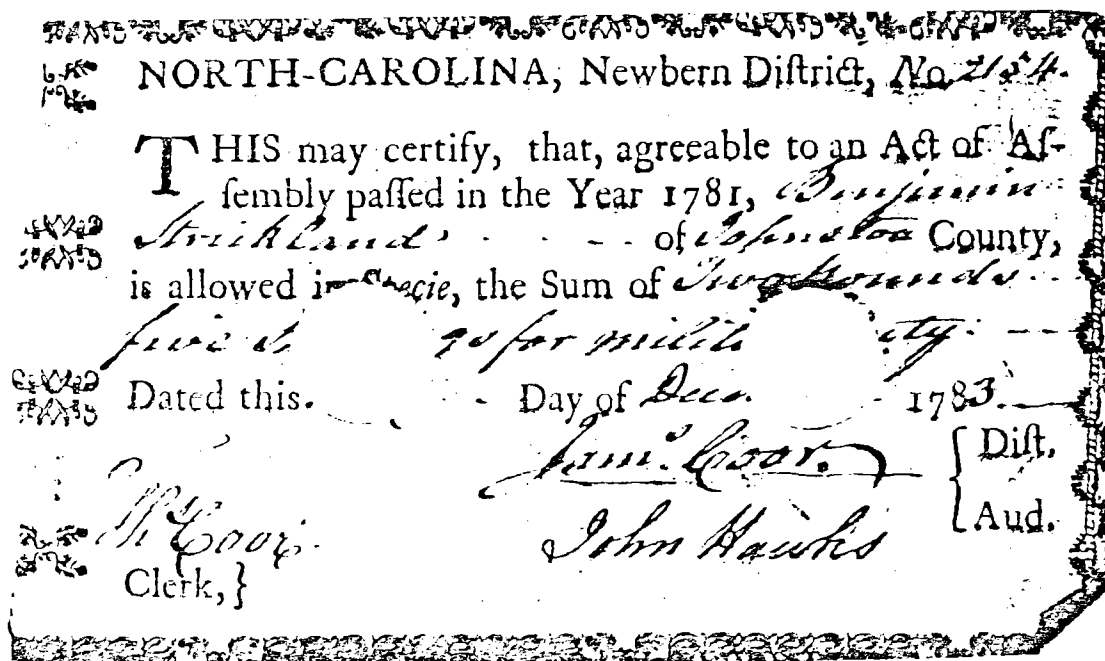 NORTH-CAROLINA, Newbern Diſtrict, No. 2154.
THIS may certify, that, agreeable to an Act of Aſ-
ſembly paſſed in the Year 1781, Benjamin
Strickland of Johnston County,
is allowed in Specie, the Sum of Two Pounds
five for
Dated this. Day of 1783.
Jams. Coor. { Diſt.
John Hawks Aud.
Coor.
Clerk, }